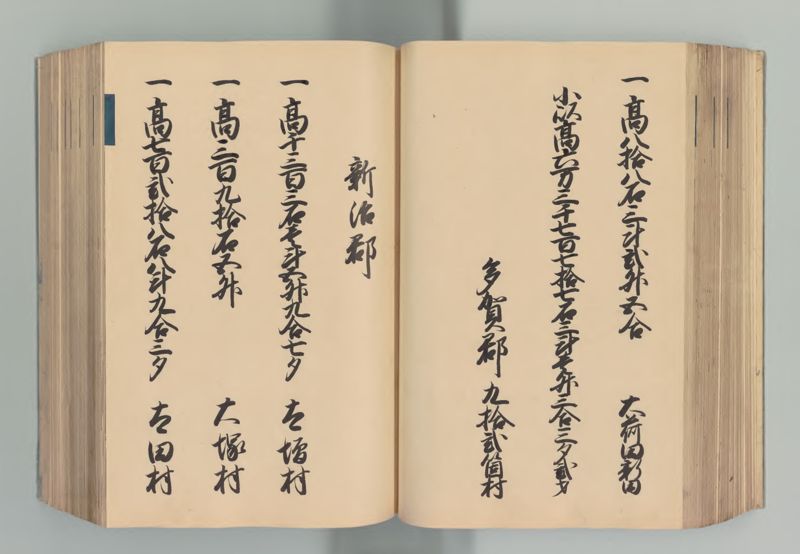 一高八拾八石三斗弐升五合 大荷田新田
小以高六万三千七百七拾七石三斗壱升三合三夕弐才
多賀郡 九拾弐箇村
新治郡
一高千三百三石壱斗五升九合七夕
一高三百九拾石五升 大塚村
一高七百弐拾八石八斗九合三夕 太田村